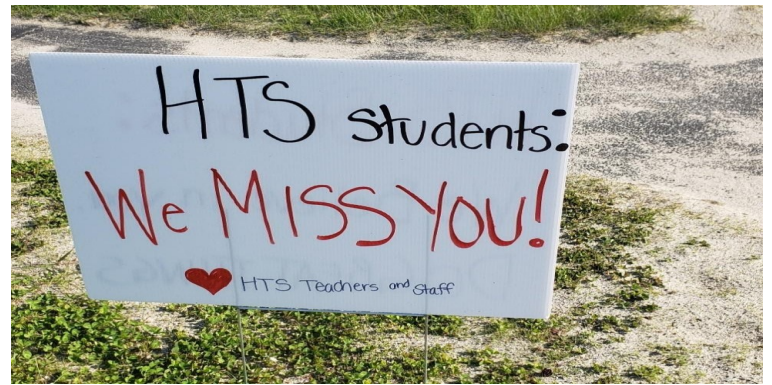 HTS students:
We MISS YOU!
HTS Teachers and Staff